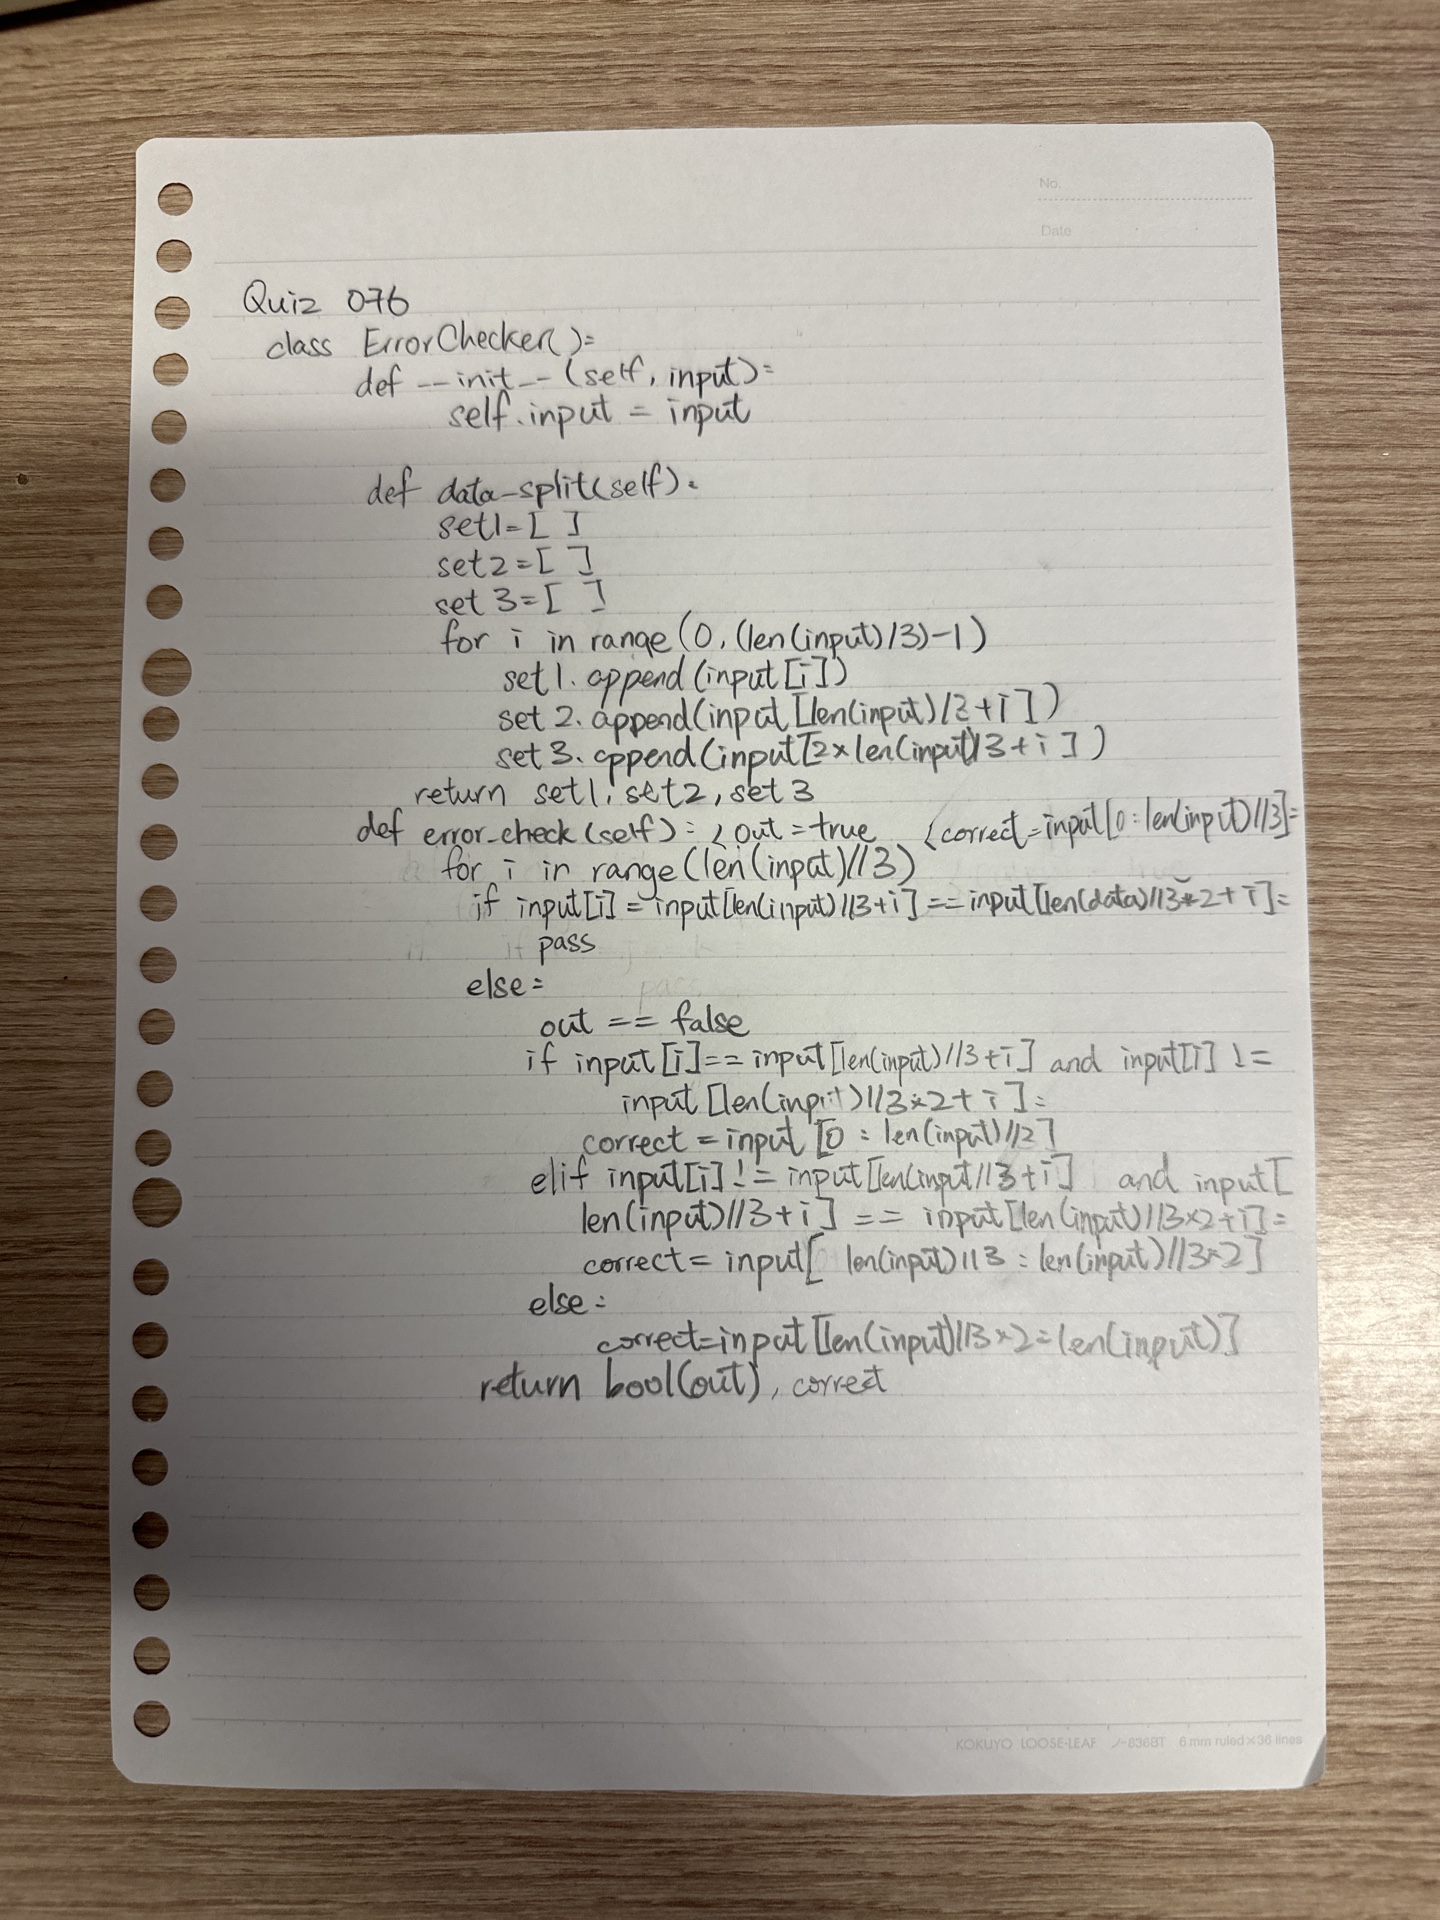 No.
Date
Quiz 076
class ErrorChecker():
def __init__(self, input):
self.input = input
def data_split(self):
set1=[ ]
set2=[ ]
set3=[ ]
for i in range(0, (len(input)/3)-1)
set1.append(input[i])
set2.append(input[len(input)/3+i])
set3.append(input[2×len(input)/3+i])
return set1, set2, set3
def error_check(self): < out = true < correct=input[0:len(input)//3]:
for i in range(len(input)//3)
if input[i] = input[len(input)//3+i] == input[len(data)//3*2+i]:
pass
else:
out == false
if input[i]==input[len(input)//3+i] and input[i] !=
input[len(input)//3*2+i]:
correct = input[0:len(input)//2]
elif input[i] != input[len(input//3+i] and input[
len(input)//3+i] == input[len(input)//3×2+i]:
correct = input[len(input)//3:len(input)//3*2]
else:
correct=input[len(input)//3×2:len(input)]
return bool(out), correct
KOKUYO LOOSE-LEAF ノ-836BT 6 mm ruled×36 lines